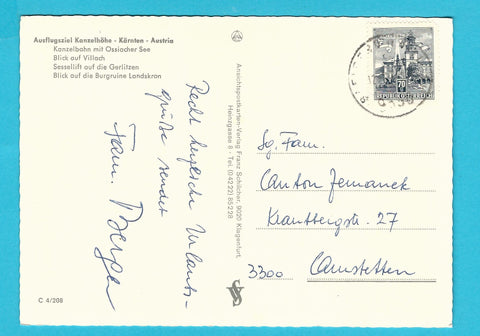 Ausflugsziel Kanzelhöhe - Kärnten - Austria
Kanzelbahn mit Ossiacher See
Blick auf Villach
Sessellift auf die Gerlitzen
Blick auf die Burgruine Landskron
Recht herzliche Urlaubs-
grüße sendet
Fam. Berger
Ansichtspostkarten-Verlag Franz Schilcher, 9020 Klagenfurt,
Heinzgasse 8 - Tel. (04222) 85 2 28
C 4/208
70
REPUBLIK ÖSTERREICH
Sg. Fam.
Anton Jemanek
Krautbergstr. 27
3300 Amstetten